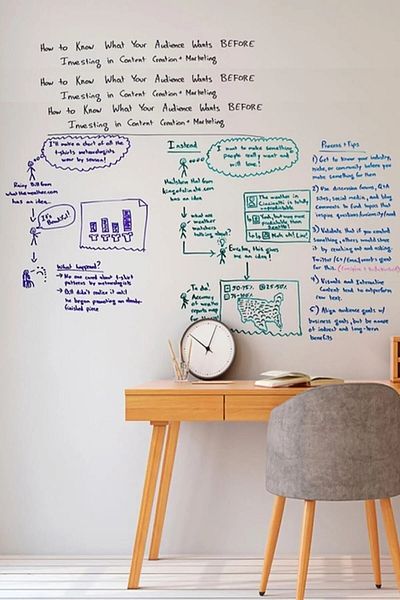 How to Know What Your Audience Wants BEFORE
Investing in Content Creation + Marketing
How to Know What Your Audience Wants BEFORE
Investing in Content Creation + Marketing
How to Know What Your Audience Wants BEFORE
Investing in Content Creation + Marketing
I'll make a chart of all the
t-shirts meteorologists
wear by season!
Rainy Bill from
whattheweather.com
has an idea...
It's Beautiful!
What happened?
No one cared about t-shirt
patterns by meteorologists
Bill didn't realize it until
he began promoting
finished piece
Instead
I want to make something
people really want and
will love!
Hailstorm Hal from
has an idea
what are
weather
talking about?
The weather in
Cincinnati is totally
unpredictable
Nuh uh! Lou!
this gives
me an idea!
To do:
Accuracy
reports
Process + Tips
1) Get to know your industry,
niche, or community before you
make something for them
2) Use discussion forums, Q+A
sites, social media, and blog
comments to find topics that
inspire questions/curiosity/need
3) Validate that if you create
something, others would share
it by reaching out and asking.
Twitter/G+/Email are great
for this.
4) Visuals and Interactive
Content tend to outperform
raw text.
5) Align audience goals w/
business goals, but be aware
of indirect and long-term
benefits